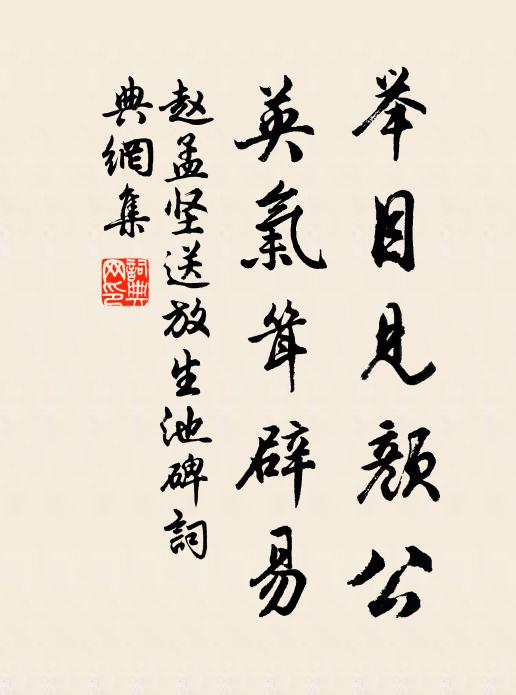 举目见颜公
英氣耸辟易
赵孟坚送放生池碑詞
典網集
詞典
网印